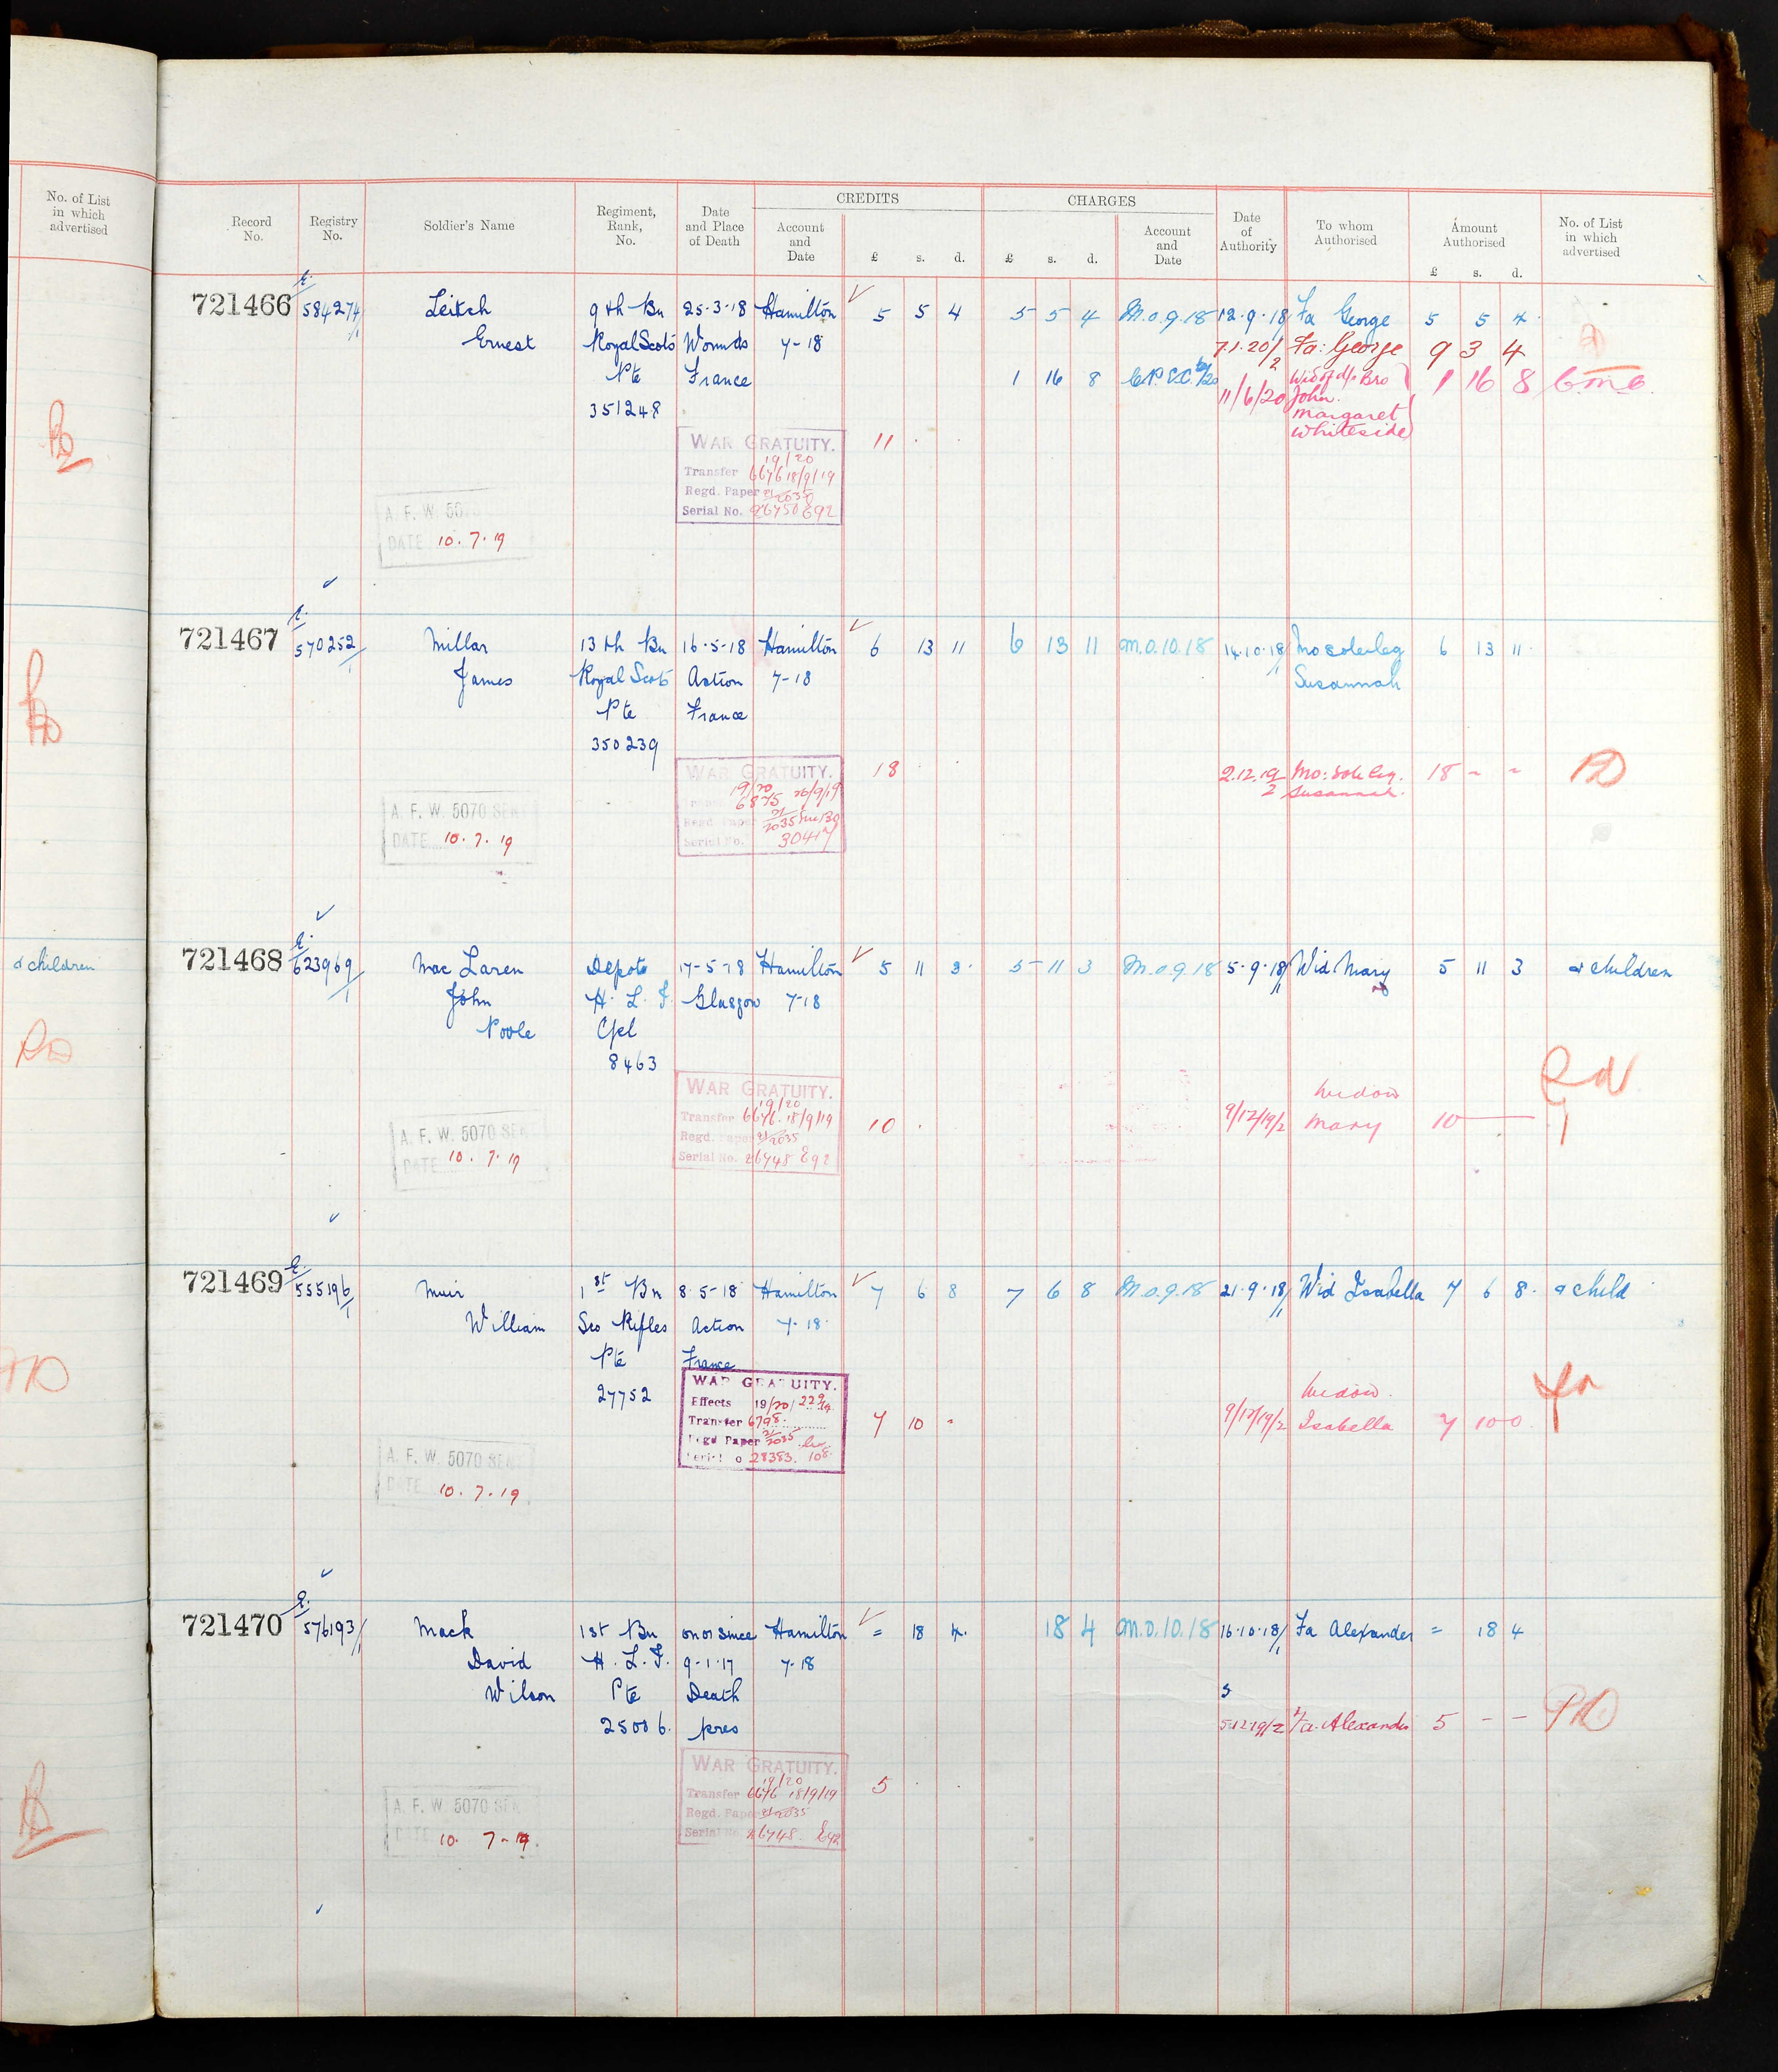 No. of List
in which
advertised
& children
Record
No.
Registry
No.
Soldier's Name
Regiment,
Rank,
No.
Date
and Place
of Death
CREDITS
Account
and
Date
£ s. d.
CHARGES
£ s. d.
Account
and
Date
Date
of
Authority
To whom
Authorised
Amount
Authorised
£ s. d.
No. of List
in which
advertised
721466 E/584274/1 Leitch 9th Bn 25-3-18 Hamilton 5 5 4 5 5 4 M.O.9.18 12.9.18/1 Fa George 5 5 4
Ernest Royal Scots Wounds 7-18 7.1.20/2 Fa: George 9 3 4
Pte France 1 16 8 11/6/20 Wid of d/o Bro 1 16 8
351248 John.
Margaret
Whiteside
WAR GRATUITY. 11 . .
19/20
Transfer 6676 18/9/19
Regd. Paper 21/2035
Serial No. 26750 E92
A. F. W. 5070
DATE 10.7.19
721467 E/570252/1 Millar 13th Bn 16.5-18 Hamilton 6 13 11 6 13 11 M.O.10.18 14.10.18/1 Mo sole leg 6 13 11
James Royal Scots Action 7-18 Susannah
Pte France
350239
WAR GRATUITY. 18 . . 2.12.19/2 Mo: sole leg. 18 - -
19/20 Susannah.
6875 26/9/19
Regd. Paper 21/2035
Serial No. 30417
A. F. W. 5070 SENT
DATE 10.7.19
721468 E/623969/1 Mac Laren Depots 17-5-18 Hamilton 5 11 3 5 11 3 M.O.9.18 5.9.18/1 Wid Mary 5 11 3 & children
John H. L. I. Glasgow 7-18
Poole Cpl
8463
WAR GRATUITY. 10 . 9/12/19/2 Widow
19/20 Mary 10
Transfer 6676. 18/9/19
Regd. Paper 21/2035
Serial No. 26748 E92
A. F. W. 5070 SENT
DATE 10.7.19
721469 E/555196/1 Muir 1st Bn 8.5-18 Hamilton 7 6 8 7 6 8 M.O.9.18 21.9.18/1 Wid Isabella 7 6 8. & child
William Sco Rifles Action 7.18
Pte France
27752
WAR GRATUITY.
Effects 19/20/ 22/9/19
Transfer 6798. 7 10 - 9/12/19/2 Widow.
Regd Paper 21/2035 Isabella 7 10 0
Serial No 28383. 108
A. F. W. 5070 SENT
DATE 10.7.19
721470 E/576193/1 Mack 1st Bn on or since Hamilton = 18 4. 18 4 M.O.10.18 16.10.18/1 Fa Alexander = 18 4
David H. L. I. 9-1-17 7-18
Wilson Pte Death
25006. pres 5.12.19/2 Fa. Alexander 5 - -
WAR GRATUITY. 5 . .
19/20
Transfer 6676 18/9/19
Regd. Paper 21/2035
Serial No. 26748. E92
A. F. W. 5070 SENT
DATE 10. 7-19.